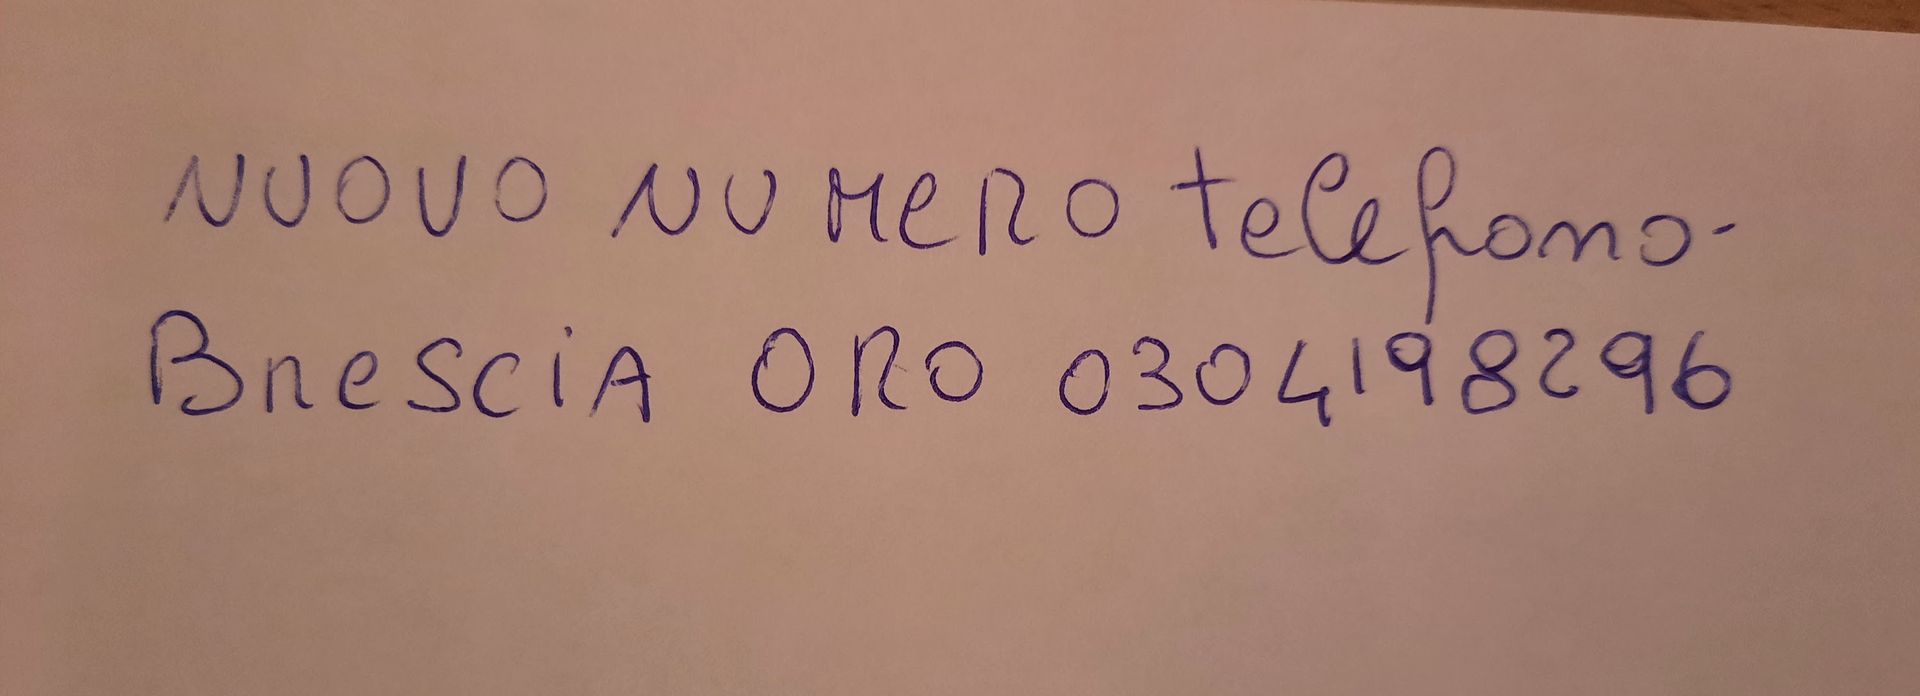 NUOVO NUMERO telefono-
BResciA ORO 0304198296